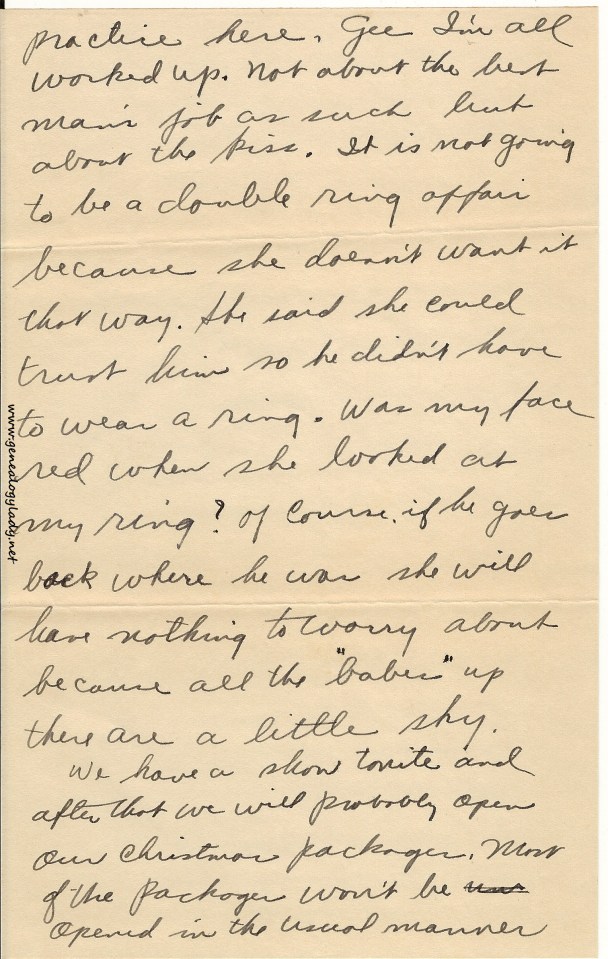 practice here. Gee I'm all
worked up. Not about the best
man's job as such but
about the kiss. It is not going
to be a double ring affair
because she doesn't want it
that way. She said she could
trust him so he didn't have
to wear a ring. Was my face
red when she looked at
my ring? Of course, if he goes
back where he was she will
have nothing to worry about
because all the "babes" up
there are a little shy.
We have a show tonite and
after that we will probably open
our Christmas packages. Most
of the packages won't be
opened in the usual manner
www.genealogylady.net